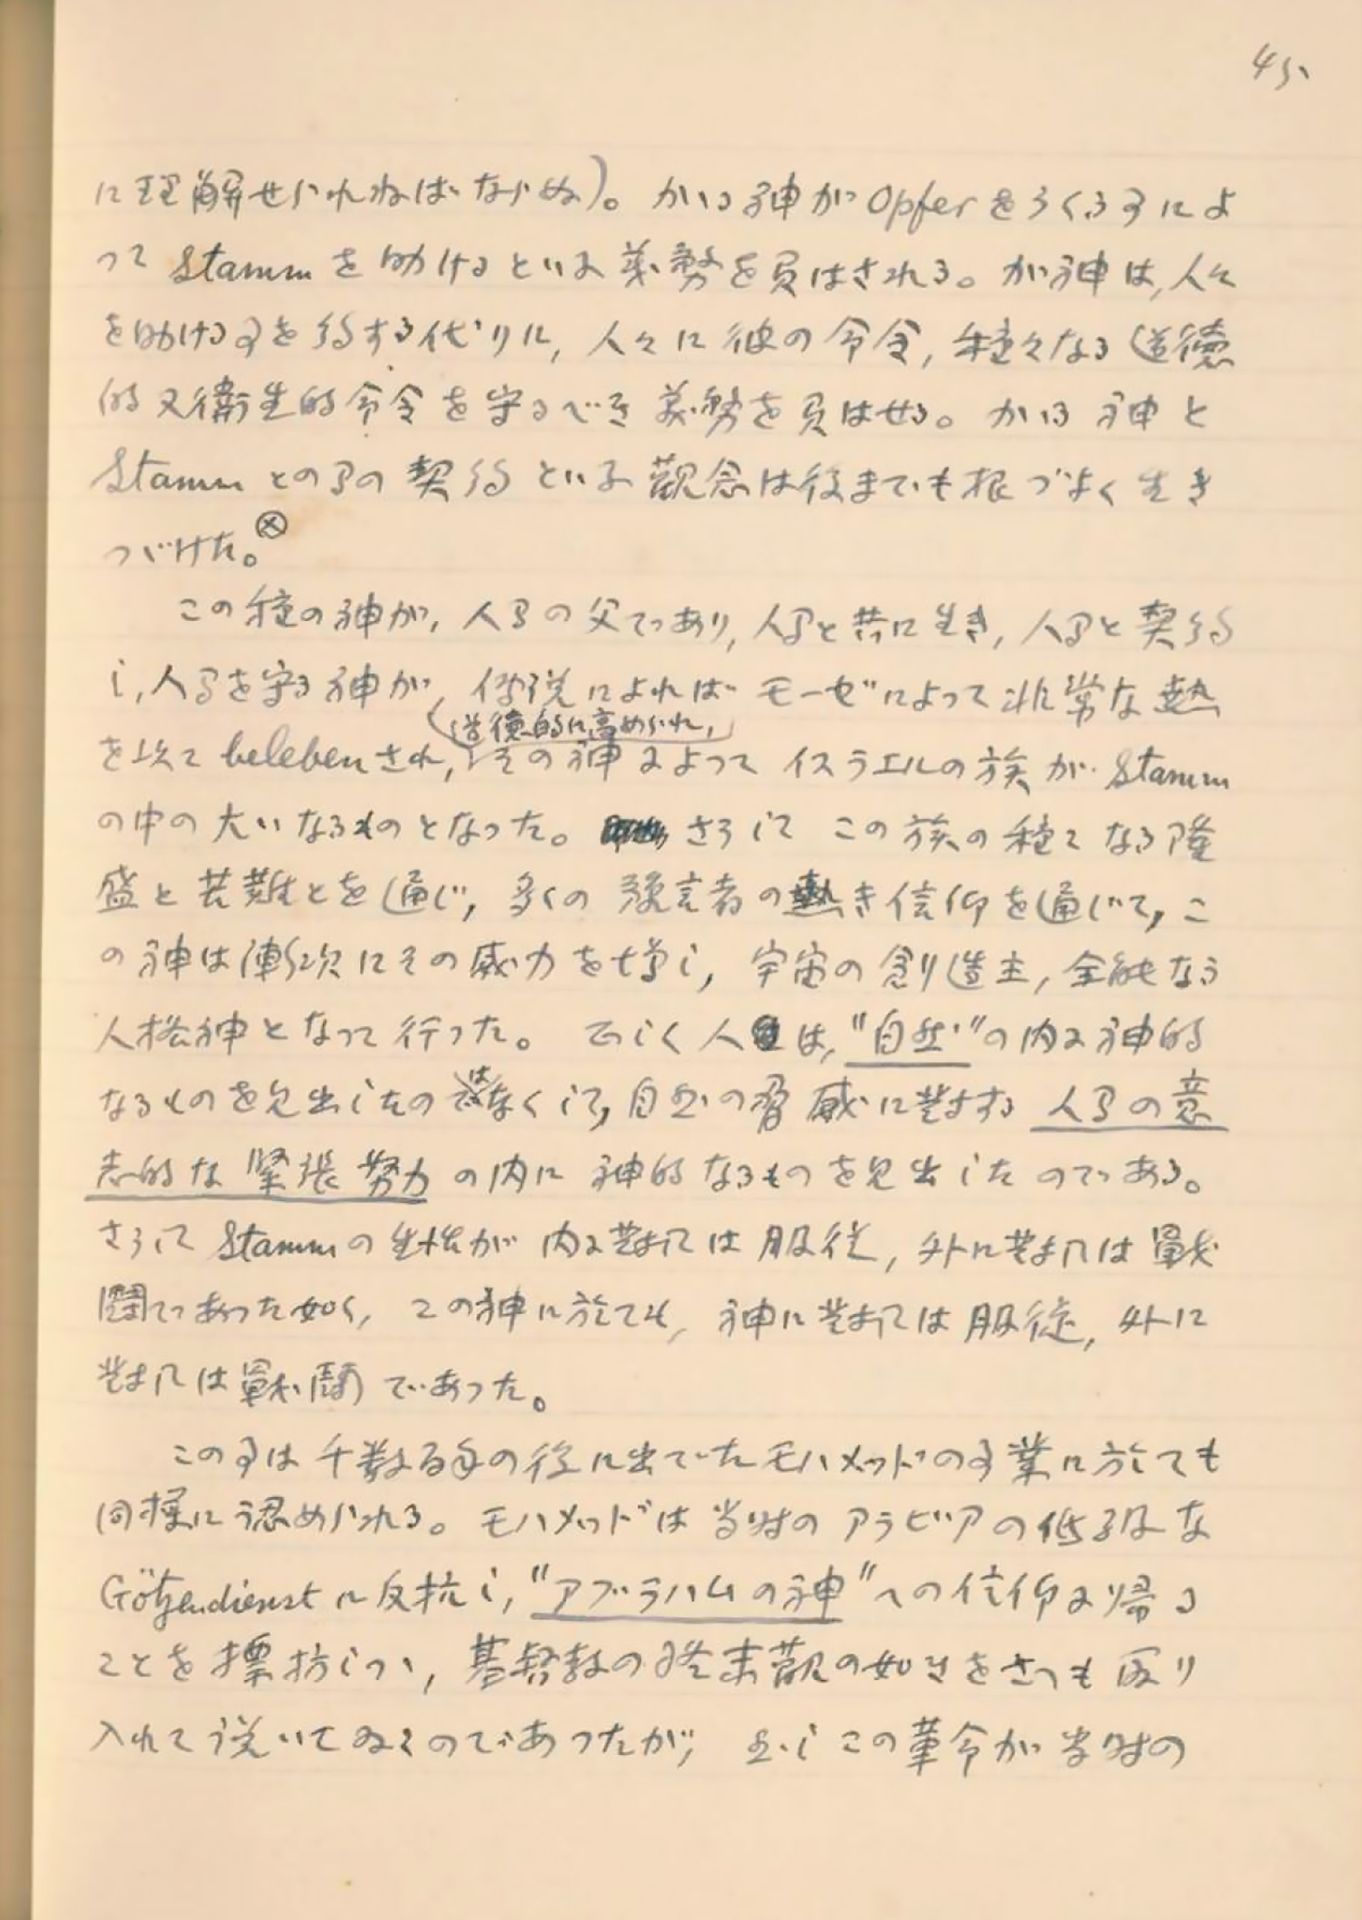 45
に理解せられねばならぬ)。かゝる神が Opfer をうくる事によ
つて Stamm を助けるといふ義務を負はされる。が神は,人々
を助ける事を約する代りに,人々に彼の命令,種々なる道徳
的又衛生的命令を守るべき義務を負はせる。かゝる神と
Stamm との間の契約といふ觀念は後までも根づよく生き
つゞけた。⊗
この種の神が,人間の父であり,人間と共に生き,人間と契約
し,人間を守る神が,傳説によればモーゼによつて非常な熱
(道徳的に高められ,)
を以て beleben され,その神によつてイスラエルの族が Stamm
の中の大いなるものとなつた。さうしてこの族の種々なる隆
盛と苦難とを通じ,多くの豫言者の熱き信仰を通じて,こ
の神は漸次にその威力を増し,宇宙の創造主,全能なる
人格神となつて行つた。正しく人は,"自然"の内に神的
なるものを見出したのではなくして,自然の脅威に対する人間の意
志的な緊張努力の内に神的なるものを見出したのである。
さうして Stamm の生活が内に対しては服從,外に対しては戰
鬪であつた如く,この神に於ても,神に対しては服從,外に
対しては戰鬪であつた。
この事は千数百年の後に出でたモハメッドの事業に於ても
同樣に認められる。モハメッドは当時のアラビアの低級な
Götzendienst に反抗し,"アブラハムの神"への信仰に帰る
ことを標榜しつゝ,基督教の終末觀の如きをさへも取り
入れて説いてゐるのであつたが,然しこの革命が当時の